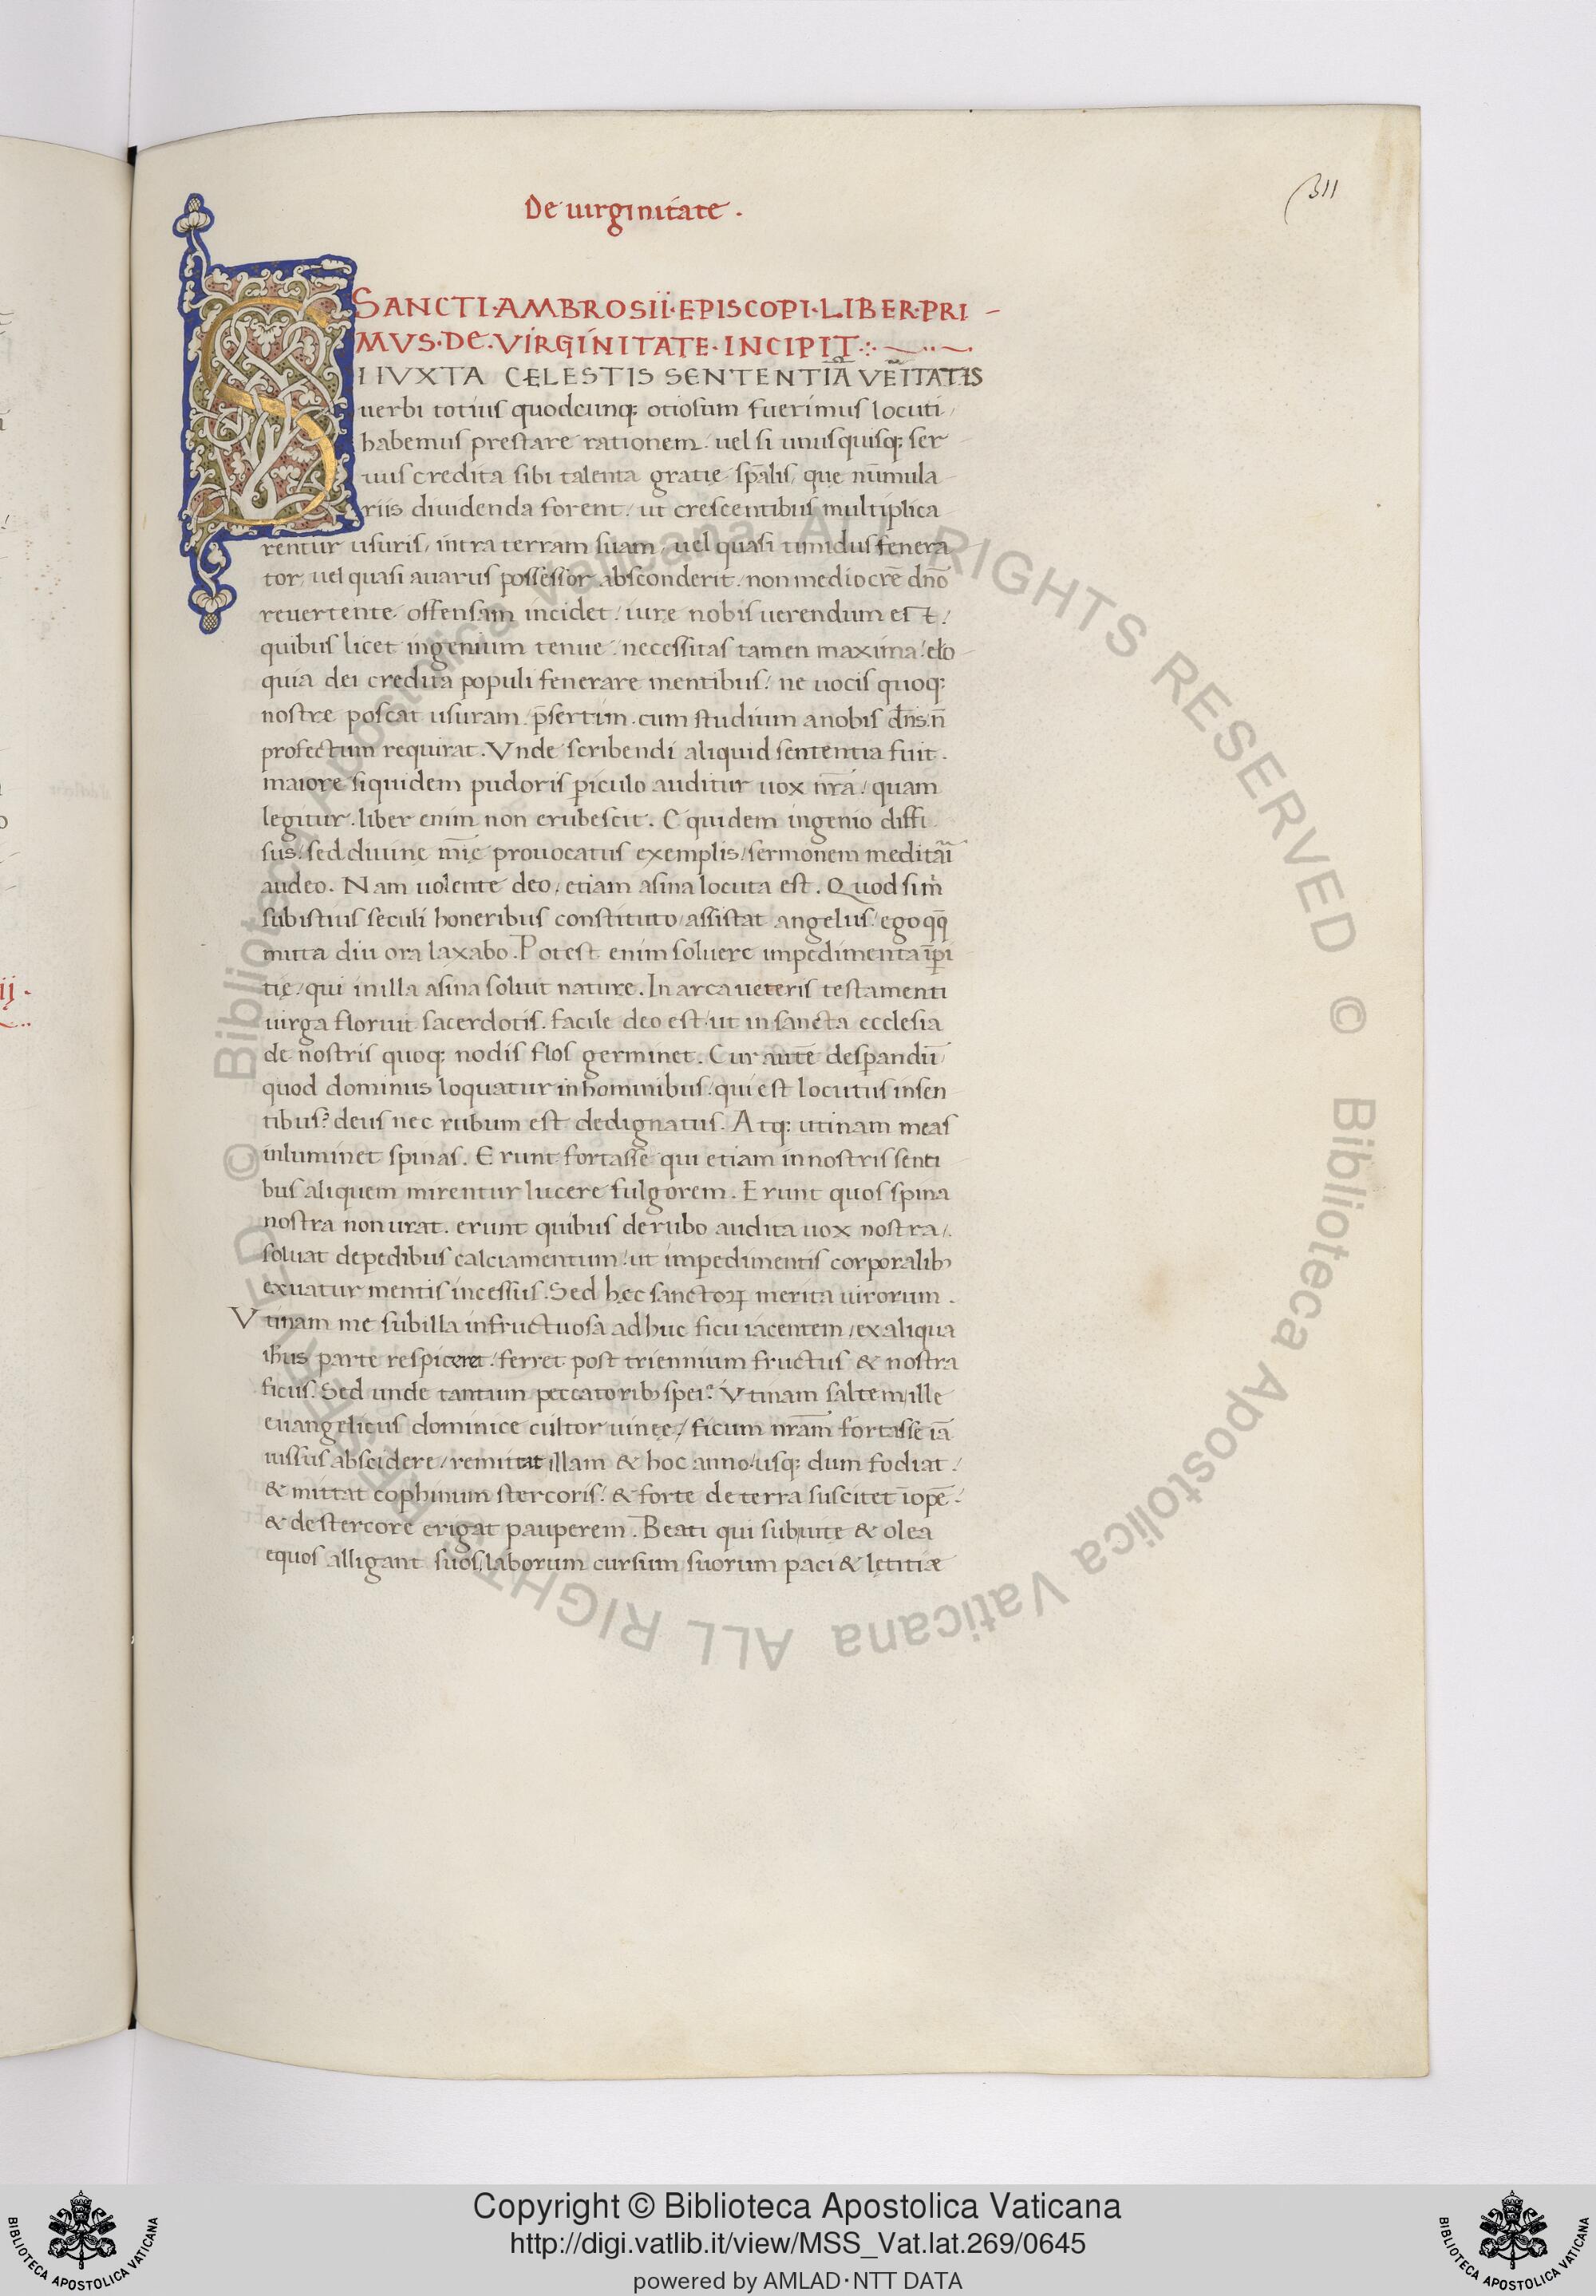 De uirginitate .
311
SANCTI·AMBROSII·EPISCOPI·LIBER·PRI-
MVS·DE·VIRGINITATE·INCIPIT
SI IVXTA CELESTIS SENTENTIĀ VEĪTATIS
uerbi totius quodcunq; otiosum fuerimus locuti/
habemus prestare rationem. uel si unusquisq; ser
uus credita sibi talenta gratię sp̄alis, que nūmula
riis diuidenda forent/ ut crescentibus multiplica
rentur usuris, intra terram suam, uel quasi timidus fenera
tor, uel quasi auarus possessor absconderit. non mediocrē dn̄o
reuertente offensam incidet/ iure nobis uerendum est/
quibus licet ingenium tenue, necessitas tamen maxima/ elo
quia dei credita populi fenerare mentibus/ ne uocis quoq;
nostre poscat usuram. p̄sertim. cum studium a nobis dn̄s n̄
profectum requirat. Vnde scribendi aliquid sententia fuit.
maiore siquidem pudoris periculo auditur uox nr̄a/ quam
legitur. liber enim non erubescit. E quidem ingenio diffi
sus/ sed diuinę mīe prouocatus exemplis/ sermonem meditāi
audeo. Nam uolente deo, etiam asina locuta est. Quod si m̍
sub istius seculi honeribus constituto/ assistat angelus/ ego qq̄
muta diu ora laxabo. Potest enim soluere impedimenta īperi
tię/ qui in illa asina soluit nature. In arca ueteris testamenti
uirga floruit sacerdotis. facile deo est/ ut in sancta ecclesia
de nostris quoq; nodis flos germinet. Cur autē desperandū
quod dominus loquatur in hominibus/ qui est locutus in sen
tibus? deus nec rubum est dedignatus. Atq; utinam meas
inluminet spinas. Erunt fortasse qui etiam in nostris senti
bus aliquem mirentur lucere fulgorem. Erunt quos spina
nostra non urat. erunt quibus de rubo audita uox nostra/.
soluat de pedibus calciamentum/ ut impedimentis corporalib;
exuatur mentis incessus. Sed hęc sanctoꝝ merita uirorum.
Vtinam me sub illa infructuosa adhuc ficu iacentem/ ex aliqua
ih̄us parte respiceret/ ferret post triennium fructus & nostra
ficus. Sed unde tantum peccatorib; spei? Vtinam saltem ille
euangelicus dominice cultor uineę/ ficum nr̄am fortasse iā
iussus abscidere/ remittat illam & hoc anno/ usq; dum fodiat/
& mittat cophinum stercoris/ & forte de terra suscitet īopē/
& de stercore erigat pauperem. Beati qui sub uite & olea
equos alligant suos, laborum cursum suorum paci & lętitiæ
© Biblioteca Apostolica Vaticana ALL RIGHTS RESERVED © Biblioteca Apostolica Vaticana ALL RIGHTS RESERVED
Copyright © Biblioteca Apostolica Vaticana
http://digi.vatlib.it/view/MSS_Vat.lat.269/0645
powered by AMLAD·NTT DATA
BIBLIOTECA APOSTOLICA VATICANA
BIBLIOTECA APOSTOLICA VATICANA